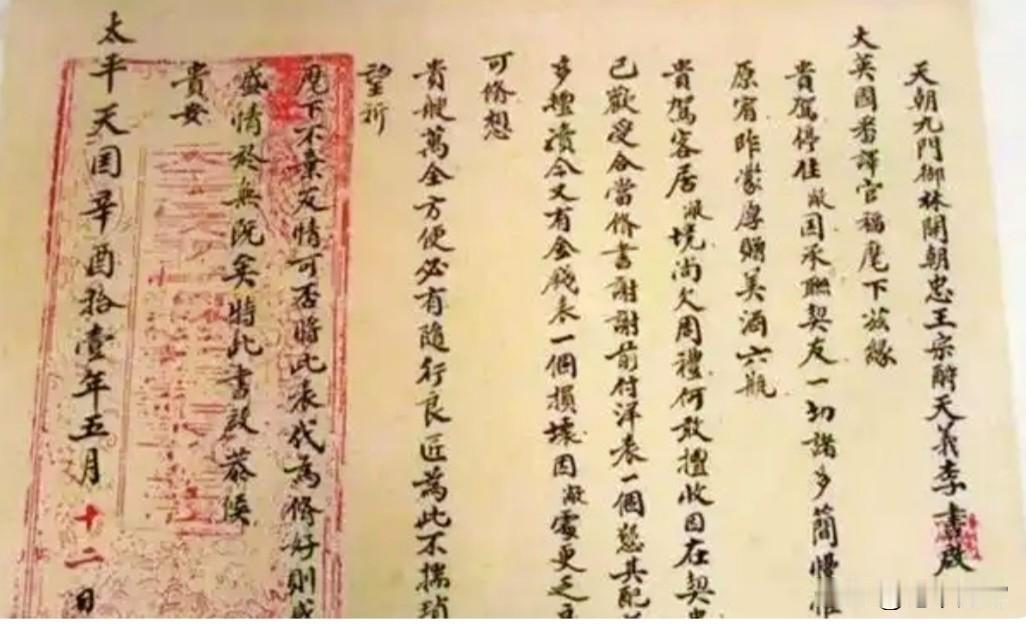 天朝九門御林開朝忠王宗酧天義李書啟
大英國番譯官福麾下茲緣
貴駕停住敝国承聯契友一切諸多簡慢惟
原宥昨蒙厚贈美酒六瓶
貴駕客居敝境尚欠周禮何敢擅收因在契
已歡受合當修書謝謝前付洋表一個懇其配
多煙瀆今又有金戔表一個損壞因敝處更乏
可修想
貴艘萬全方便必有隨行良匠為此不揣瑣
望祈
麾下不棄友情可否將此表代為修好則感
盛情於無既矣特此書啟恭候
貴安
太平天囯辛酉拾壹年五月十二日